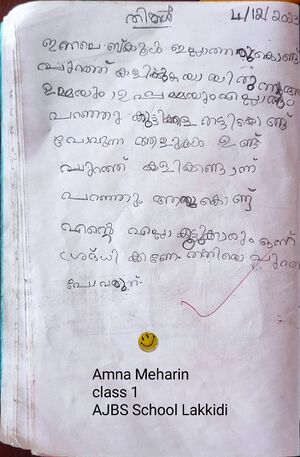 തിങ്കൾ 4/12/2023
ഇന്നലെ സ്കൂൾ ഇല്ലാത്തതുകൊണ്ട്
പുറത്ത് കളിക്കുകയായിരുന്നു
ഉമ്മയും ഉപ്പമ്മയും എല്ലാരും
പറഞ്ഞു കുട്ടികളെ തട്ടികൊണ്ട്
പോവുന്ന ആളുകൾ ഉണ്ട്
പുറത്ത് കളിക്കണ്ടാന്ന്
പറഞ്ഞു അതുകൊണ്ട്
എന്റെ എല്ലാ കൂട്ടുകാരും ഒന്ന്
ശ്രദ്ധിക്കണേ തനിയെ പുറത
പോവരുത്
Amna Meharin
class 1
AJBS School Lakkidi